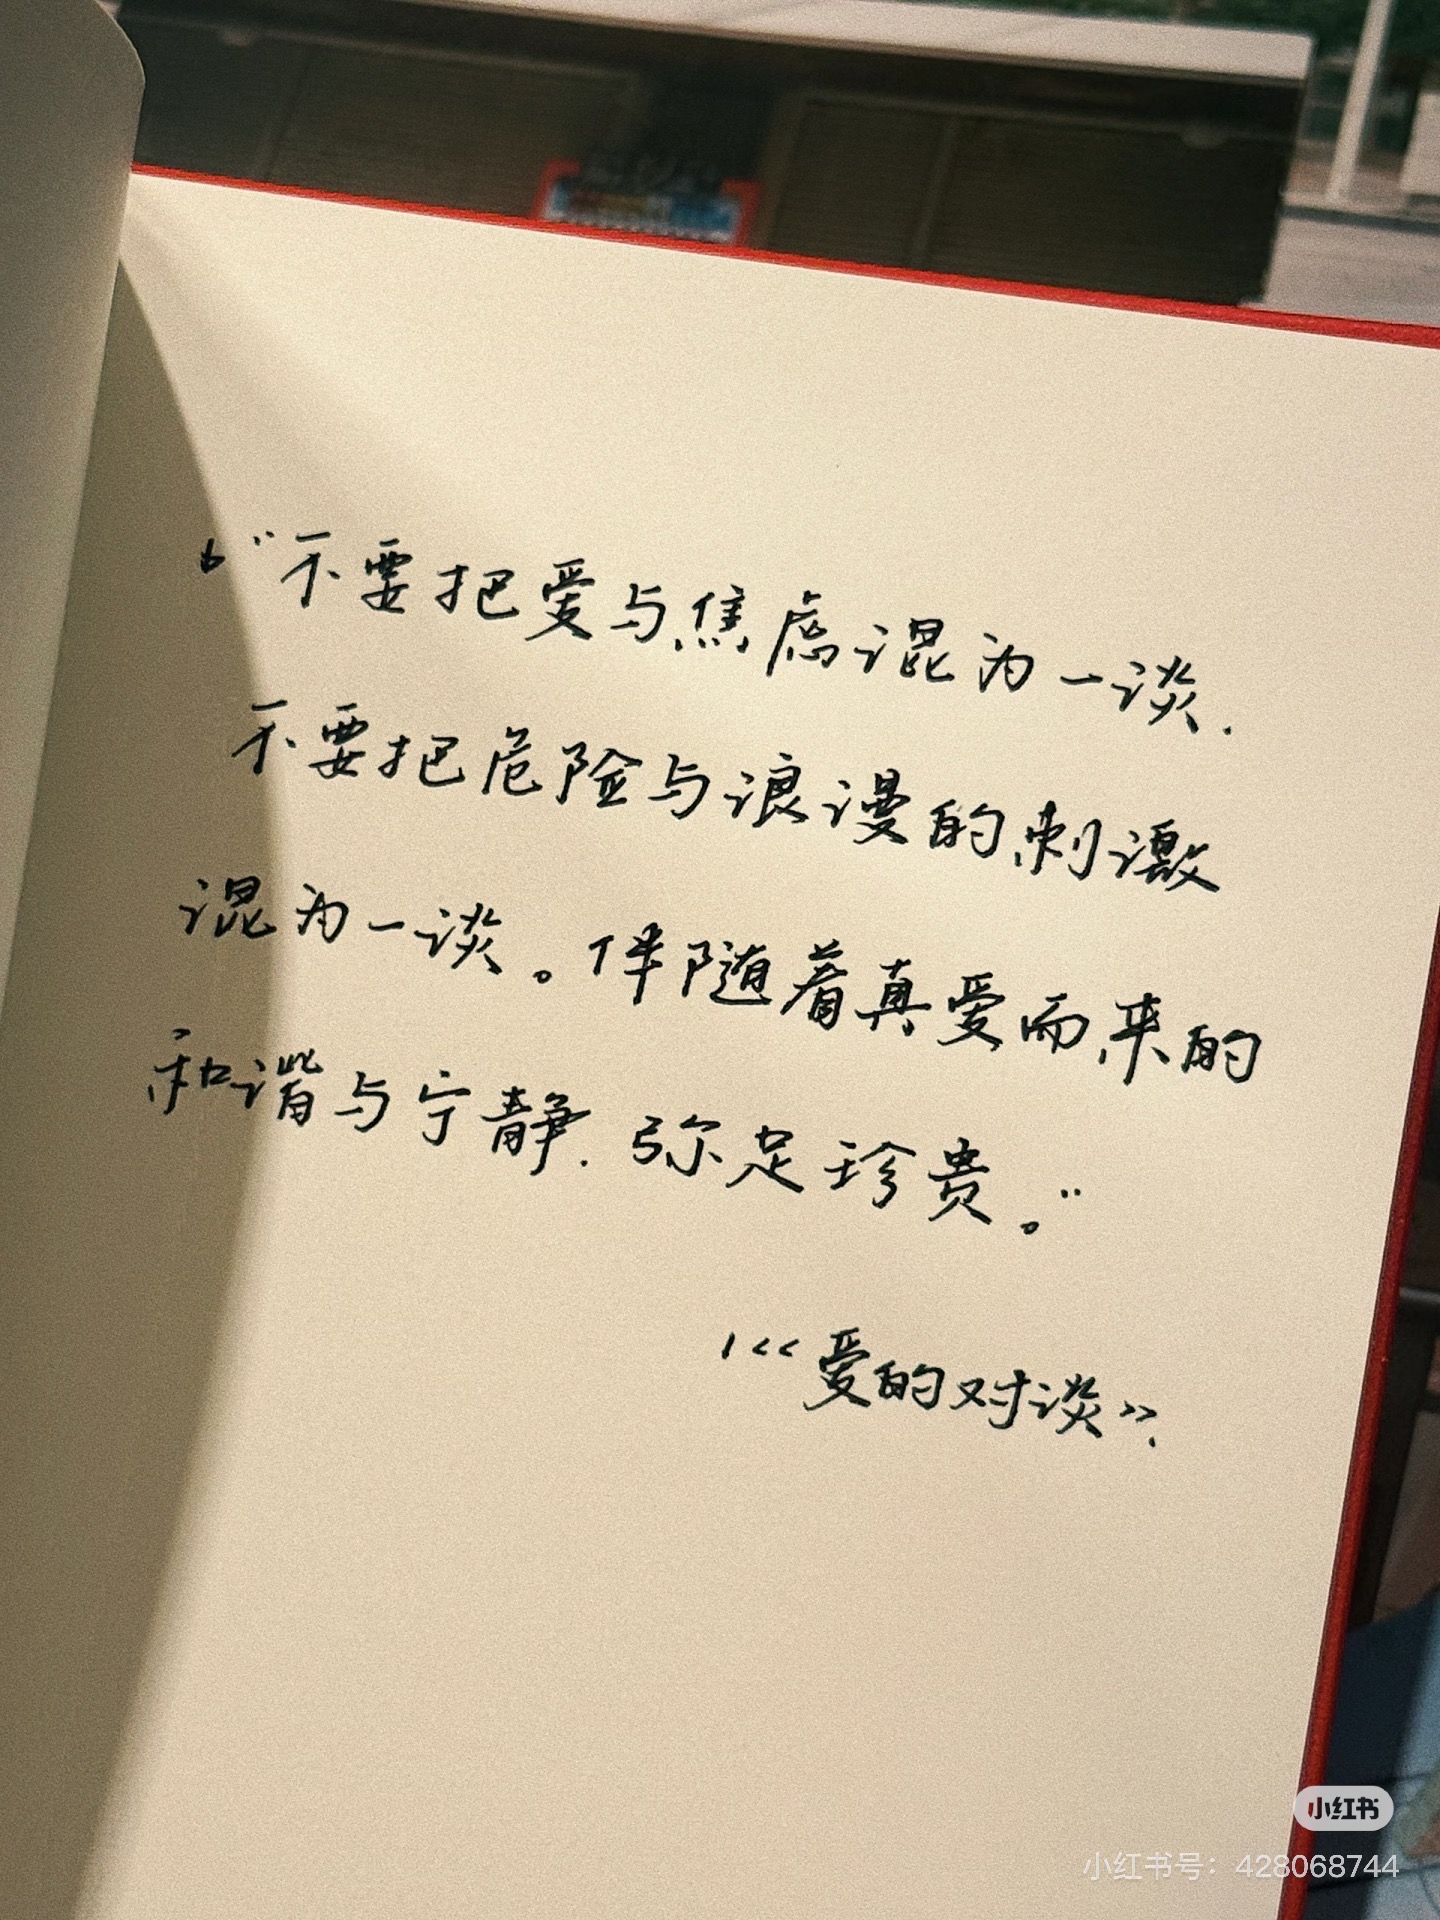 “不要把爱与焦虑混为一谈.
不要把危险与浪漫的刺激
混为一谈。伴随着真爱而来的
和谐与宁静.弥足珍贵。”
《爱的对谈》.
小红书
小红书号：428068744